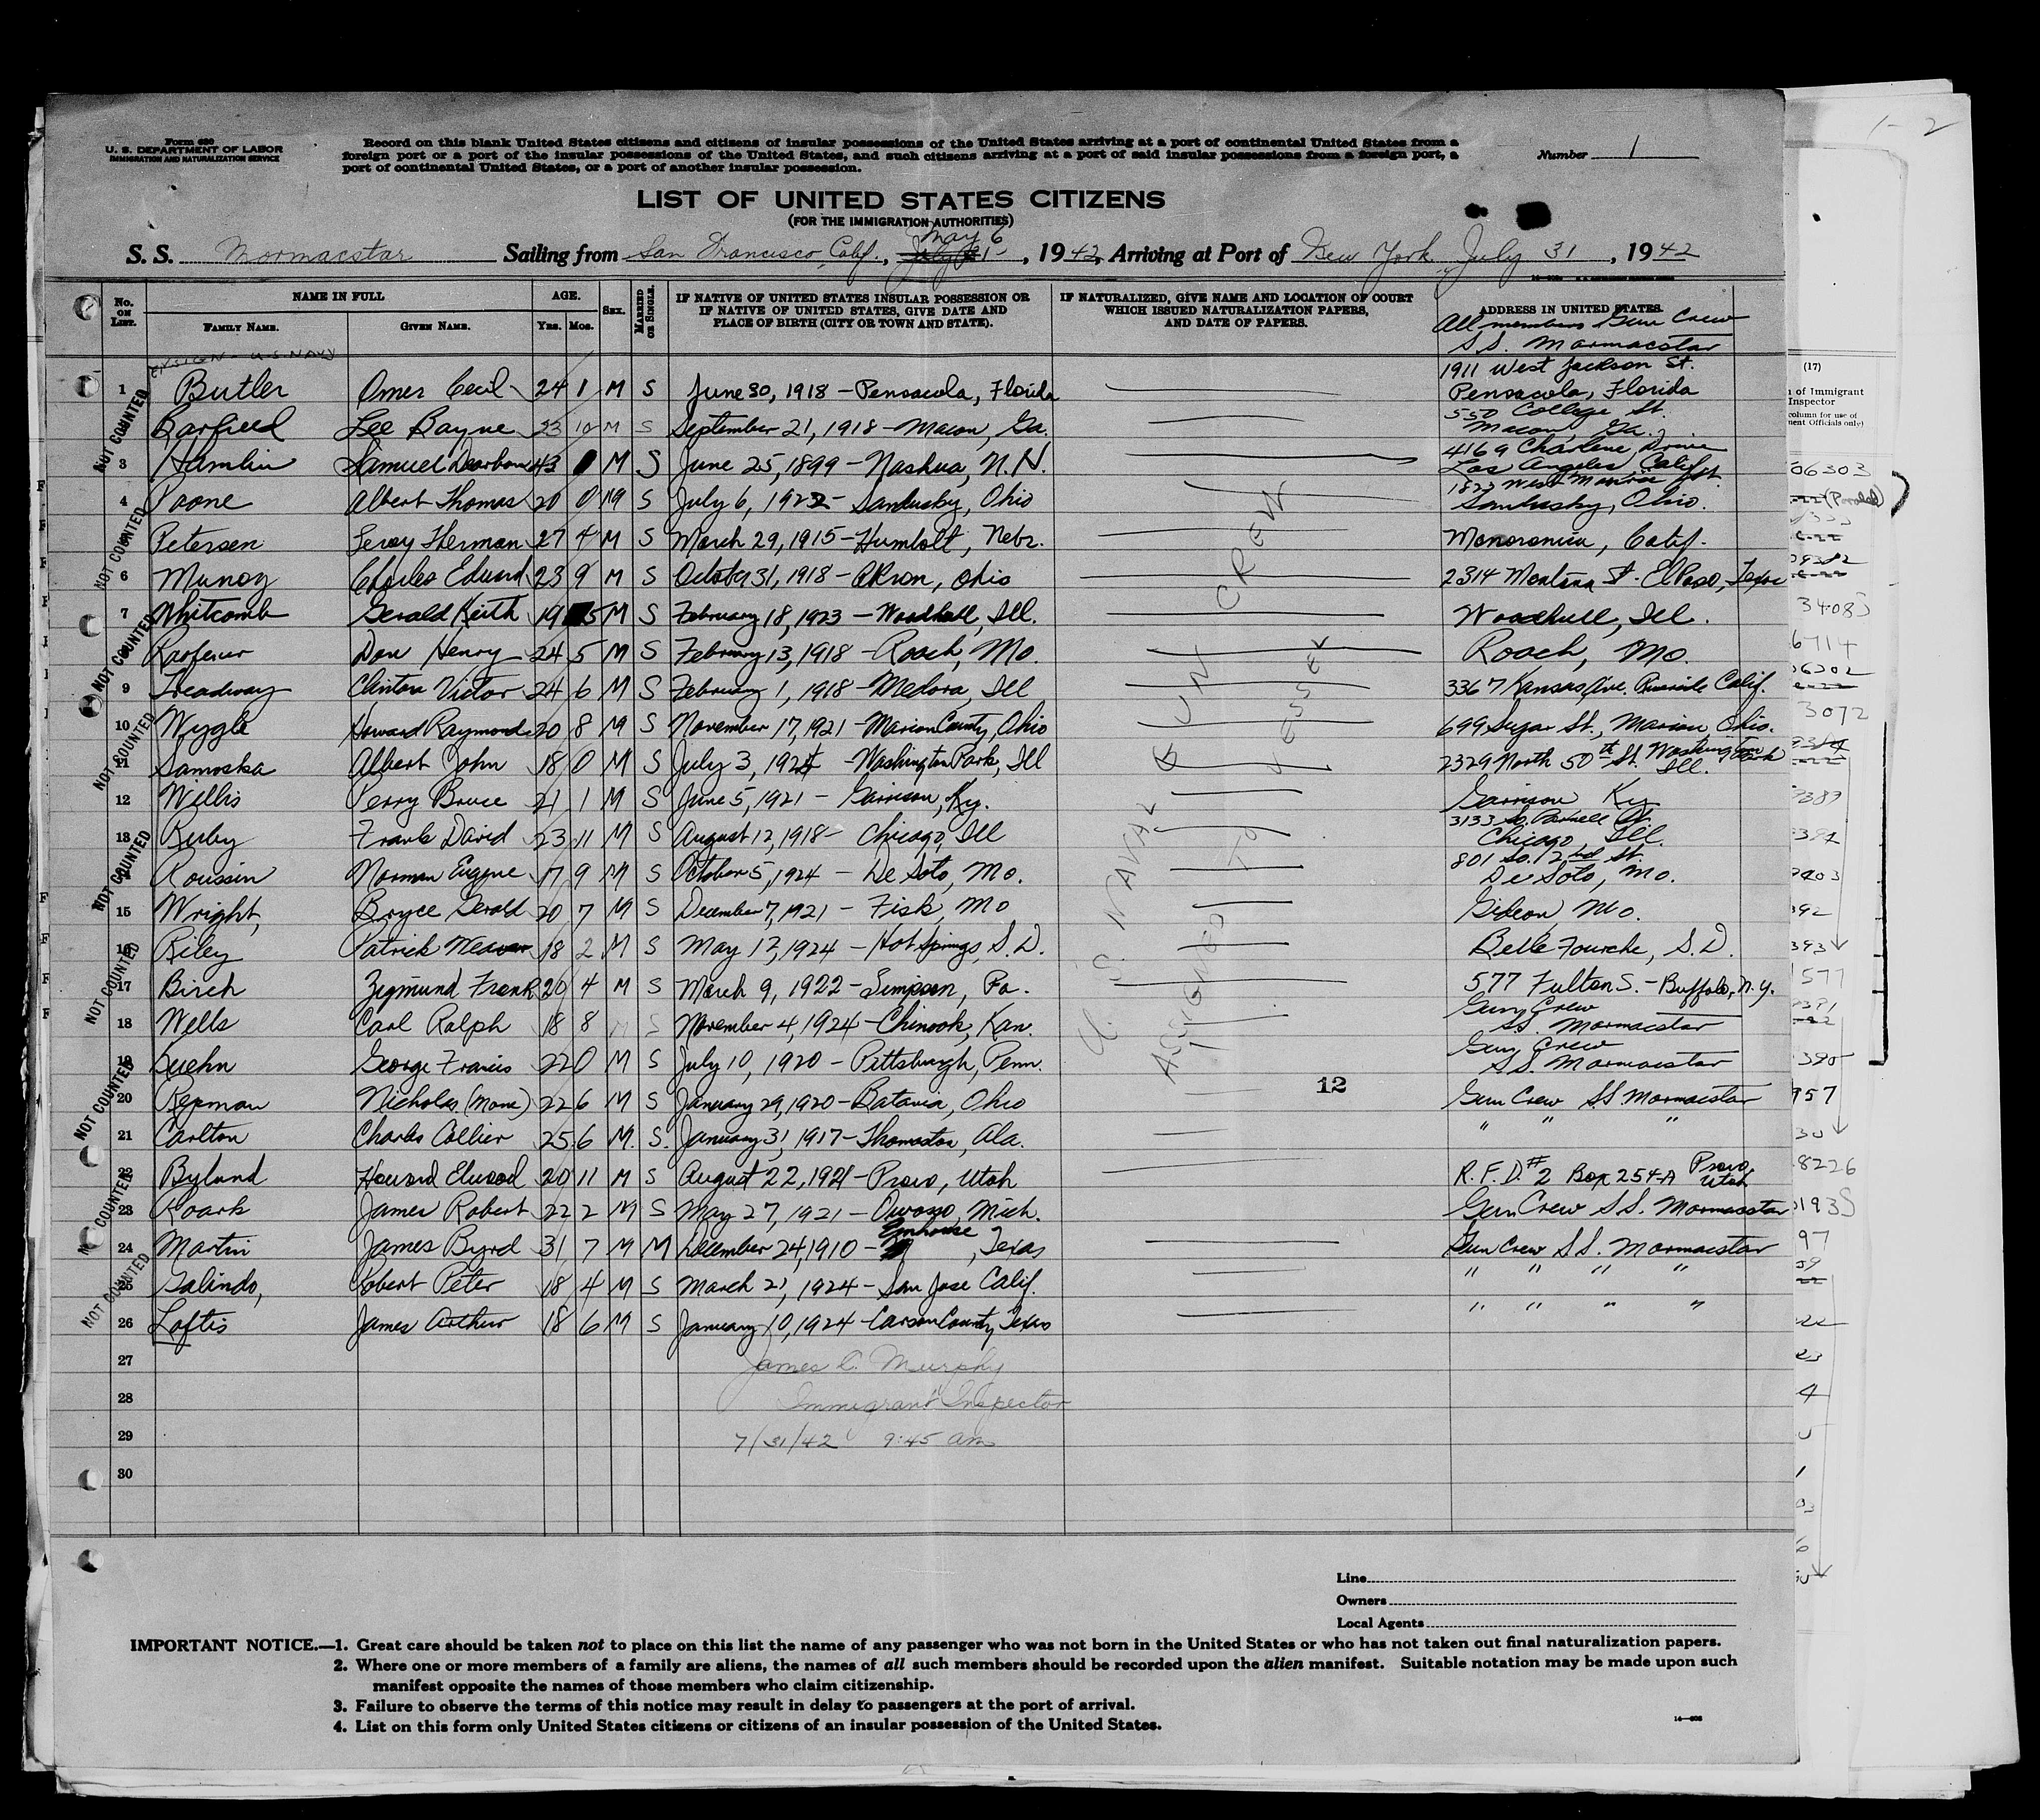 Form 630
U. S. DEPARTMENT OF LABOR
IMMIGRATION AND NATURALIZATION SERVICE
Record on this blank United States citizens and citizens of insular possessions of the United States arriving at a port of continental United States from a
foreign port or a port of the insular possessions of the United States, and such citizens arriving at a port of said insular possessions from a foreign port, a
port of continental United States, or a port of another insular possession.
Number 1
1-2
LIST OF UNITED STATES CITIZENS
(FOR THE IMMIGRATION AUTHORITIES)
May 6
S. S. Mormacstar Sailing from San Francisco, Calif., July 31, 1942, Arriving at Port of New York July 31, 1942
No. ON LIST. NAME IN FULL AGE. SEX. MARRIED OR SINGLE. IF NATIVE OF UNITED STATES INSULAR POSSESSION OR IF NATIVE OF UNITED STATES, GIVE DATE AND PLACE OF BIRTH (CITY OR TOWN AND STATE). IF NATURALIZED, GIVE NAME AND LOCATION OF COURT WHICH ISSUED NATURALIZATION PAPERS, AND DATE OF PAPERS. ADDRESS IN UNITED STATES.
FAMILY NAME. GIVEN NAME. Yrs. Mos.
All members Gun Crew
S.S. Mormacstar
ENSIGN - U.S. NAVY
1 Butler Omer Cecil 24 1 M S June 30, 1918 - Pensacola, Florida 1911 West Jackson St. Pensacola, Florida
Barfield Lee Bayne 23 10 M S September 21, 1918 - Macon, Ga. 550 College St. Macon, Ga.
3 Hamlin Samuel Dearborn 43 M S June 25, 1899 - Nashua, N.H. 4169 Charlene Drive Los Angeles, Calif.
4 Poone Albert Thomas 20 0 M S July 6, 1922 - Sandusky, Ohio 1822 West Monroe St. Sandusky, Ohio.
Petersen Leroy Herman 27 4 M S March 29, 1915 - Humbolt, Nebr. Calif.
6 Munoz Charles Edward 23 9 M S October 31, 1918 - Akron, Ohio 2314 Montana St. El Paso, Texas
7 Whitcomb Gerald Keith 19 5 M S February 18, 1923 - Woodhull, Ill. Woodhull, Ill.
Don Henry 24 5 M S February 13, 1918 - Roach, Mo. Roach, Mo.
9 Treadway Clinton Victor 24 6 M S February 1, 1918 - Medora, Ill 3367 Kansas Ave. Riverside Calif.
10 Wygle Howard Raymond 20 8 M S November 17, 1921 - Marion County, Ohio 699 Sugar St., Marion, Ohio.
11 Samoska Albert John 18 0 M S July 3, 1924 - Washington Park, Ill 2329 North 50th St. Washington Park Ill.
12 Willis Perry Bruce 21 1 M S June 5, 1921 - Garrison, Ky. Garrison Ky
13 Ruby Frank David 23 11 M S August 12, 1918 - Chicago, Ill 3133 So. Parnell Av. Chicago, Ill.
Roussin Norman Eugene 17 9 M S October 5, 1924 - De Soto, Mo. 801 So. 2nd St. De Soto, Mo.
15 Wright, Bryce Gerald 20 7 M S December 7, 1921 - Fisk, Mo Gideon Mo.
16 Riley Patrick Weaver 18 2 M S May 12, 1924 - Hot Springs, S.D. Belle Fourche, S.D.
17 Birch Zigmund Frank 20 4 M S March 9, 1922 - Simpson, Pa. 577 Fulton S. - Buffalo, N.Y.
18 Wells Carl Ralph 18 8 M S November 4, 1924 - Chinook, Kan. Gun Crew SS. Mormacstar
19 Kuehn George Francis 22 0 M S July 10, 1920 - Pittsburgh, Penn. Gun Crew S.S. Mormacstar
20 Repman Nicholas (None) 22 6 M S January 29, 1920 - Batavia, Ohio Gun Crew S.S. Mormacstar
21 Carlton Charles Collier 25 6 M. S. January 31, 1917 - Thomaston, Ala. " " "
22 Bylund Howard Elwood 20 11 M S August 22, 1921 - Provo, Utah R.F.D. #2 Box 254-A Provo, Utah
23 Roark James Robert 22 2 M S May 27, 1921 - Owosso, Mich. Gun Crew S.S. Mormacstar
24 Martin James Byrd 31 7 M M December 24, 1910 - Emhouse, Texas Gun Crew S.S. Mormacstar
25 Galindo, Robert Peter 18 4 M S March 21, 1924 - San Jose Calif. " " " "
26 Loftis James Arthur 18 6 M S January 10, 1924 - Carson County, Texas " " " "
27
28
29
30
U.S. NAVAL GUN CREW
ASSIGNED TO VESSEL
12
James C. Murphy
Immigrant Inspector
7/31/42 9:45 am
NOT COUNTED
NOT COUNTED
NOT COUNTED
NOT COUNTED
NOT COUNTED
NOT COUNTED
NOT COUNTED
NOT COUNTED
NOT COUNTED
Line
Owners
Local Agents
IMPORTANT NOTICE.—1. Great care should be taken not to place on this list the name of any passenger who was not born in the United States or who has not taken out final naturalization papers.
2. Where one or more members of a family are aliens, the names of all such members should be recorded upon the alien manifest. Suitable notation may be made upon such
manifest opposite the names of those members who claim citizenship.
3. Failure to observe the terms of this notice may result in delay to passengers at the port of arrival.
4. List on this form only United States citizens or citizens of an insular possession of the United States.
(17)
of Immigrant
Inspector
column for use of
ment Officials only)
06303